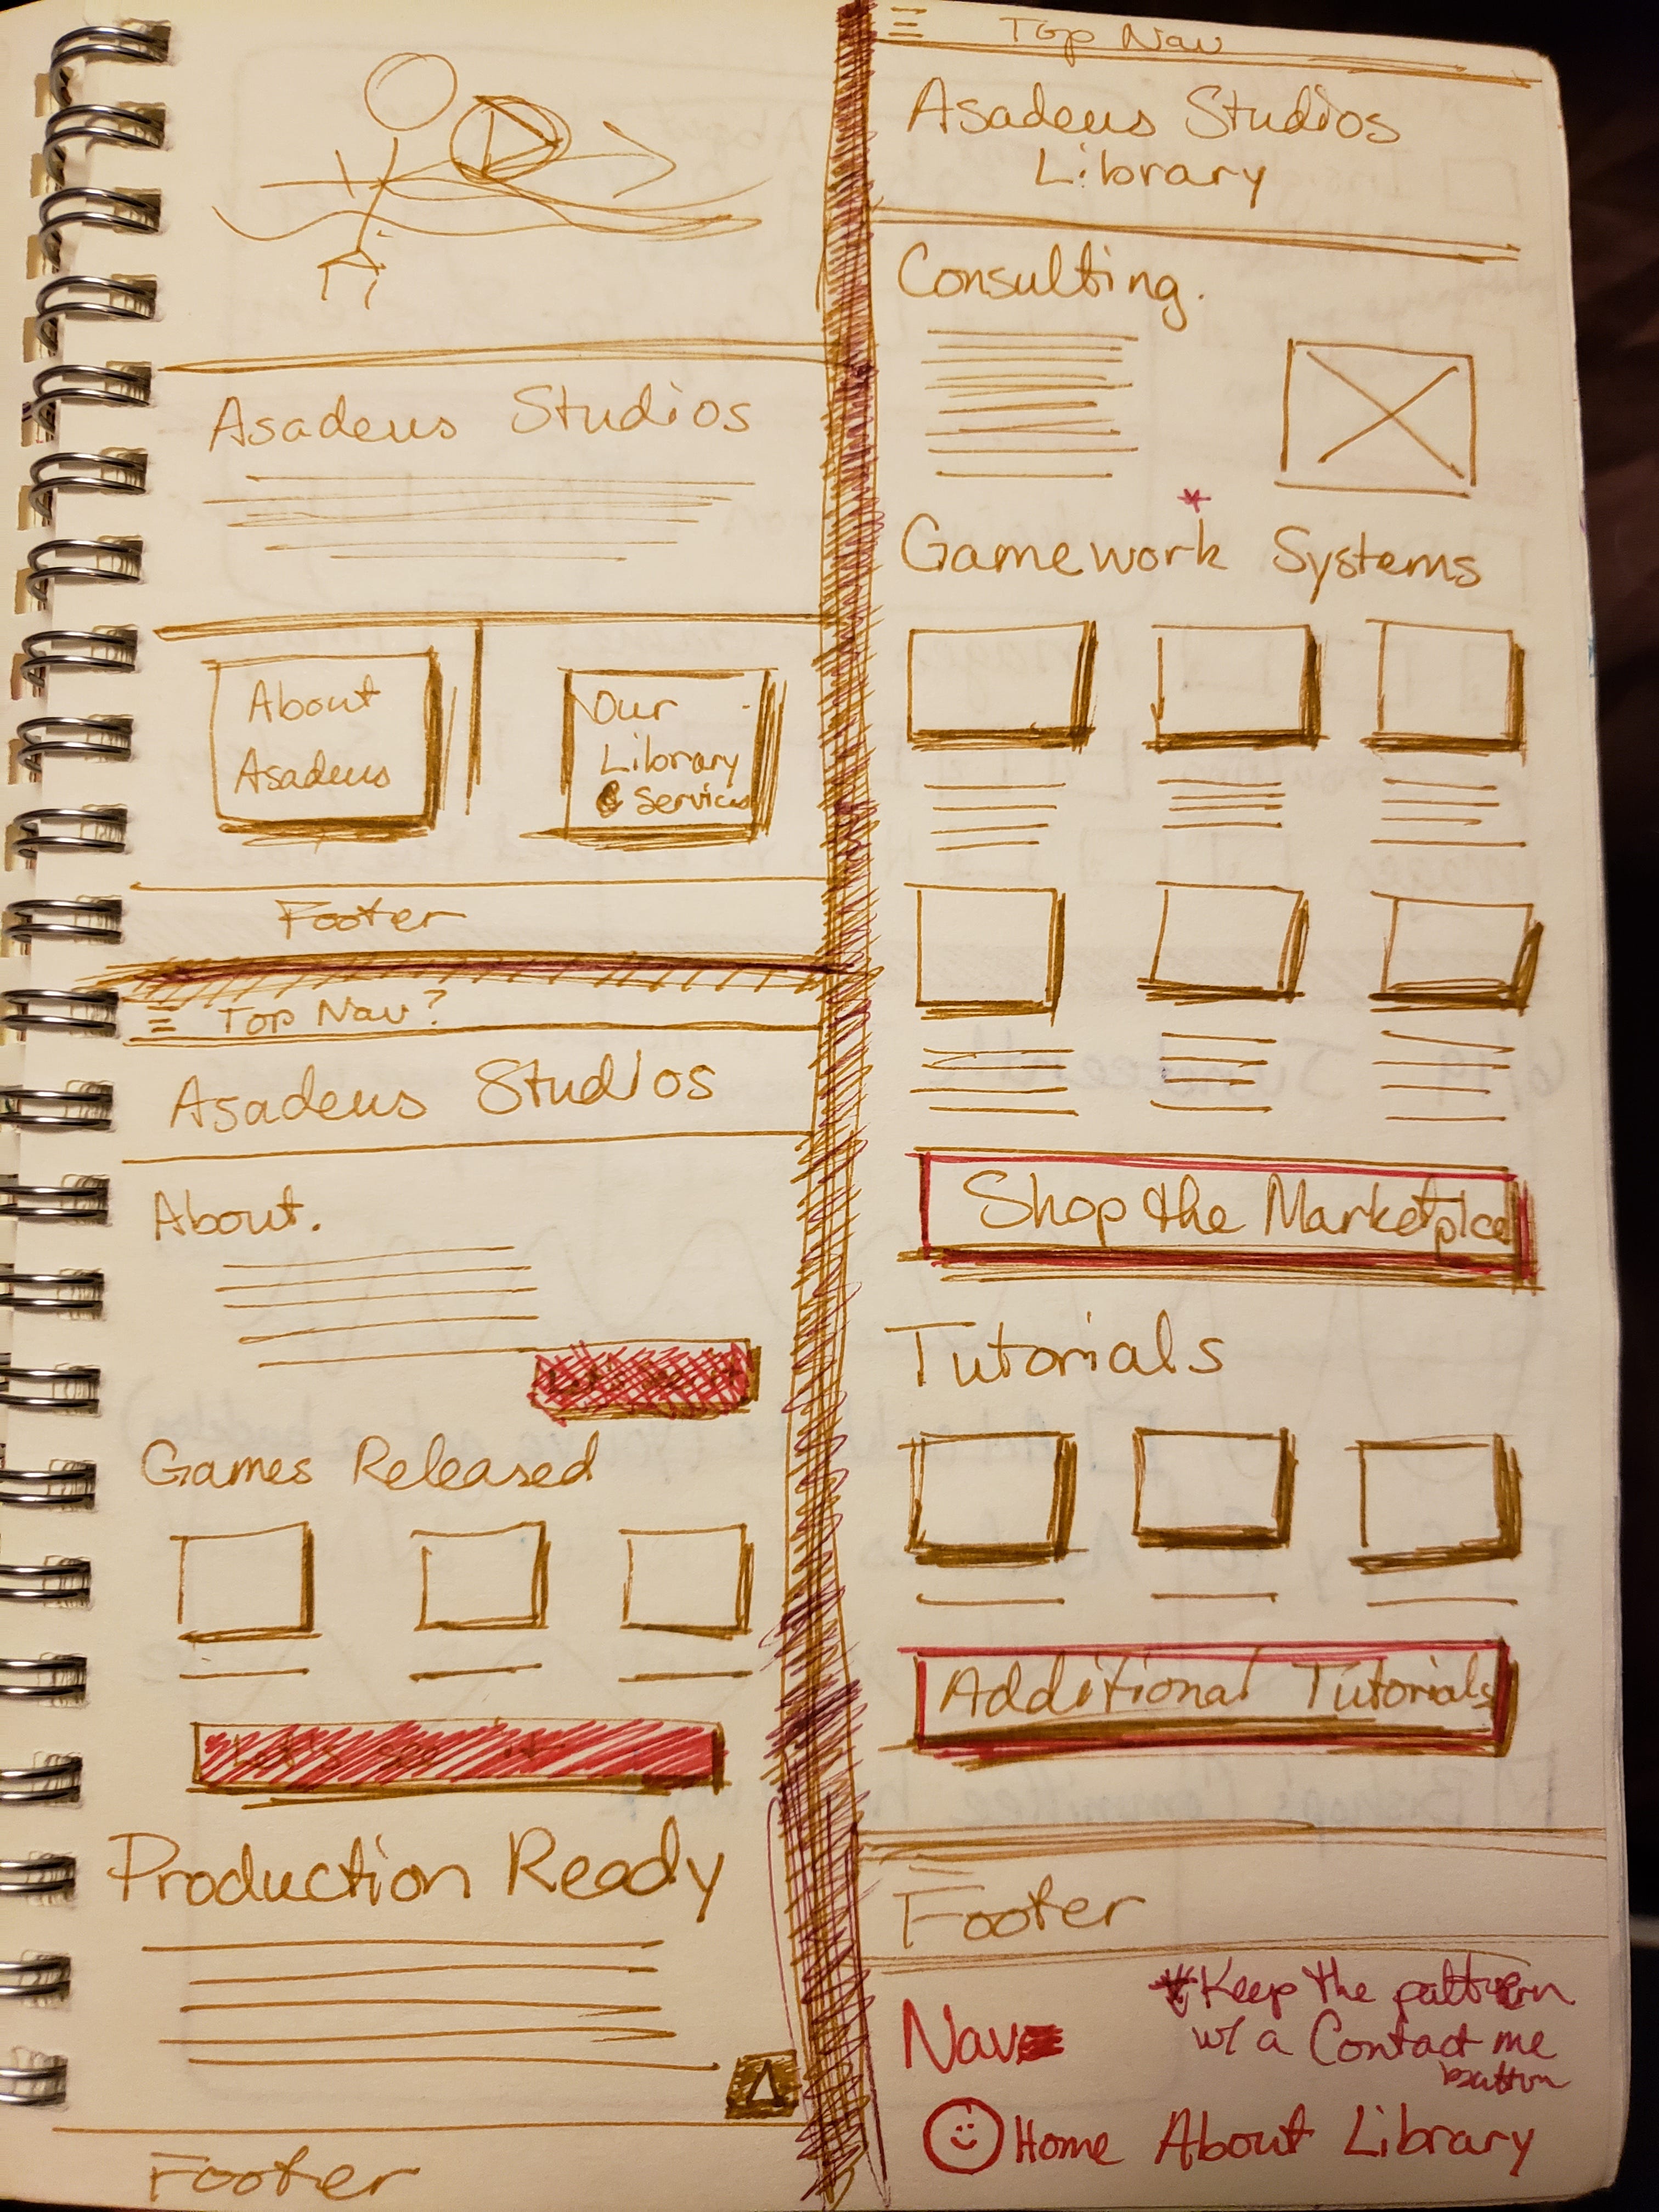 Asadeus Studios
About
Asadeus
Our
Library
& Services
Footer
Top Nav?
Asadeus Studios
About.
Games Released
Let's see it
Production Ready
Footer
Top Nav
Asadeus Studios
Library
Consulting.
*
Gamework Systems
Shop the Marketplce
Tutorials
Additional Tutorials
Footer
Nav
*Keep the pattern
w/ a Contact me
button
Home About Library